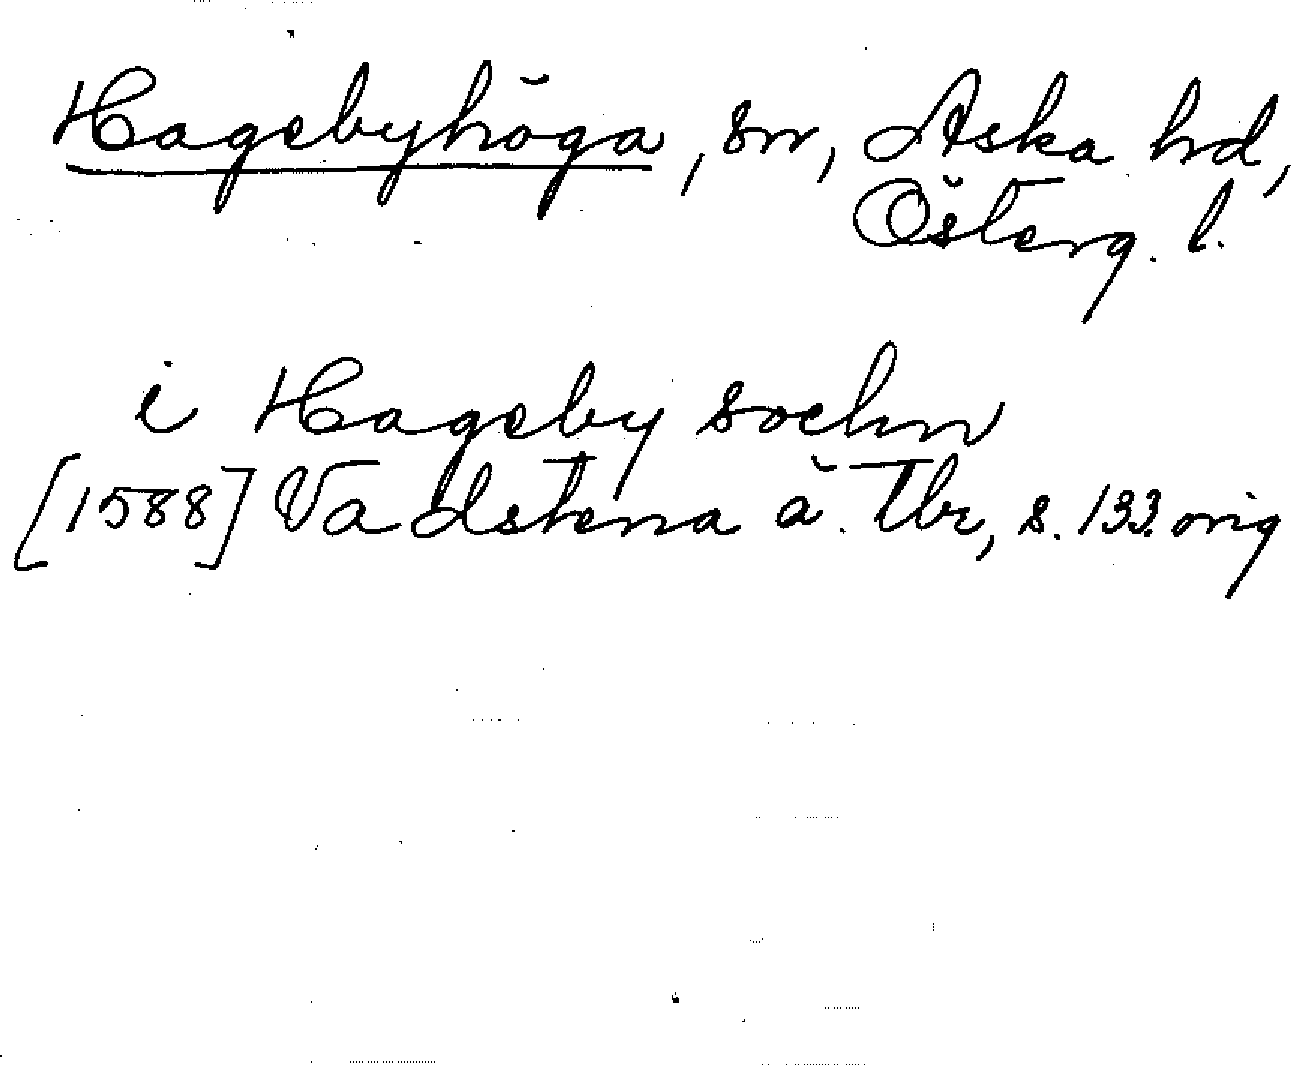 Hagebyhöga, sn, Aska hd,
Österg. l.
i Hageby sochn
[1588] Vadstena ä. Tbr, s. 133 orig